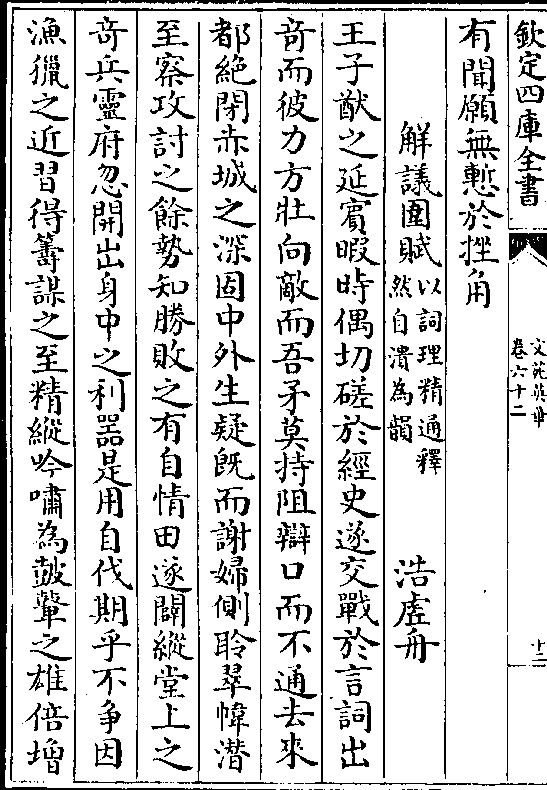 欽定四庫全書
文苑英華
卷六十二
十二
有聞願無慙於挫角
解議圍賦以詞理精通釋
然自潰為韻
浩虛舟
王子猷之延賓暇時偶切磋於經史遂交戰於言詞出
奇而彼力方壯向敵而吾矛莫持阻辯口而不通去來
都絕閉赤城之深固中外生疑既而謝婦側聆翠幃潛
至察攻討之餘勢知勝敗之有自情田遂闢縱堂上之
奇兵靈府忽開出身中之利器是用自伐期乎不争因
漁獵之近習得籌謀之至精縱吟嘯為鼓鼙之雄倍增